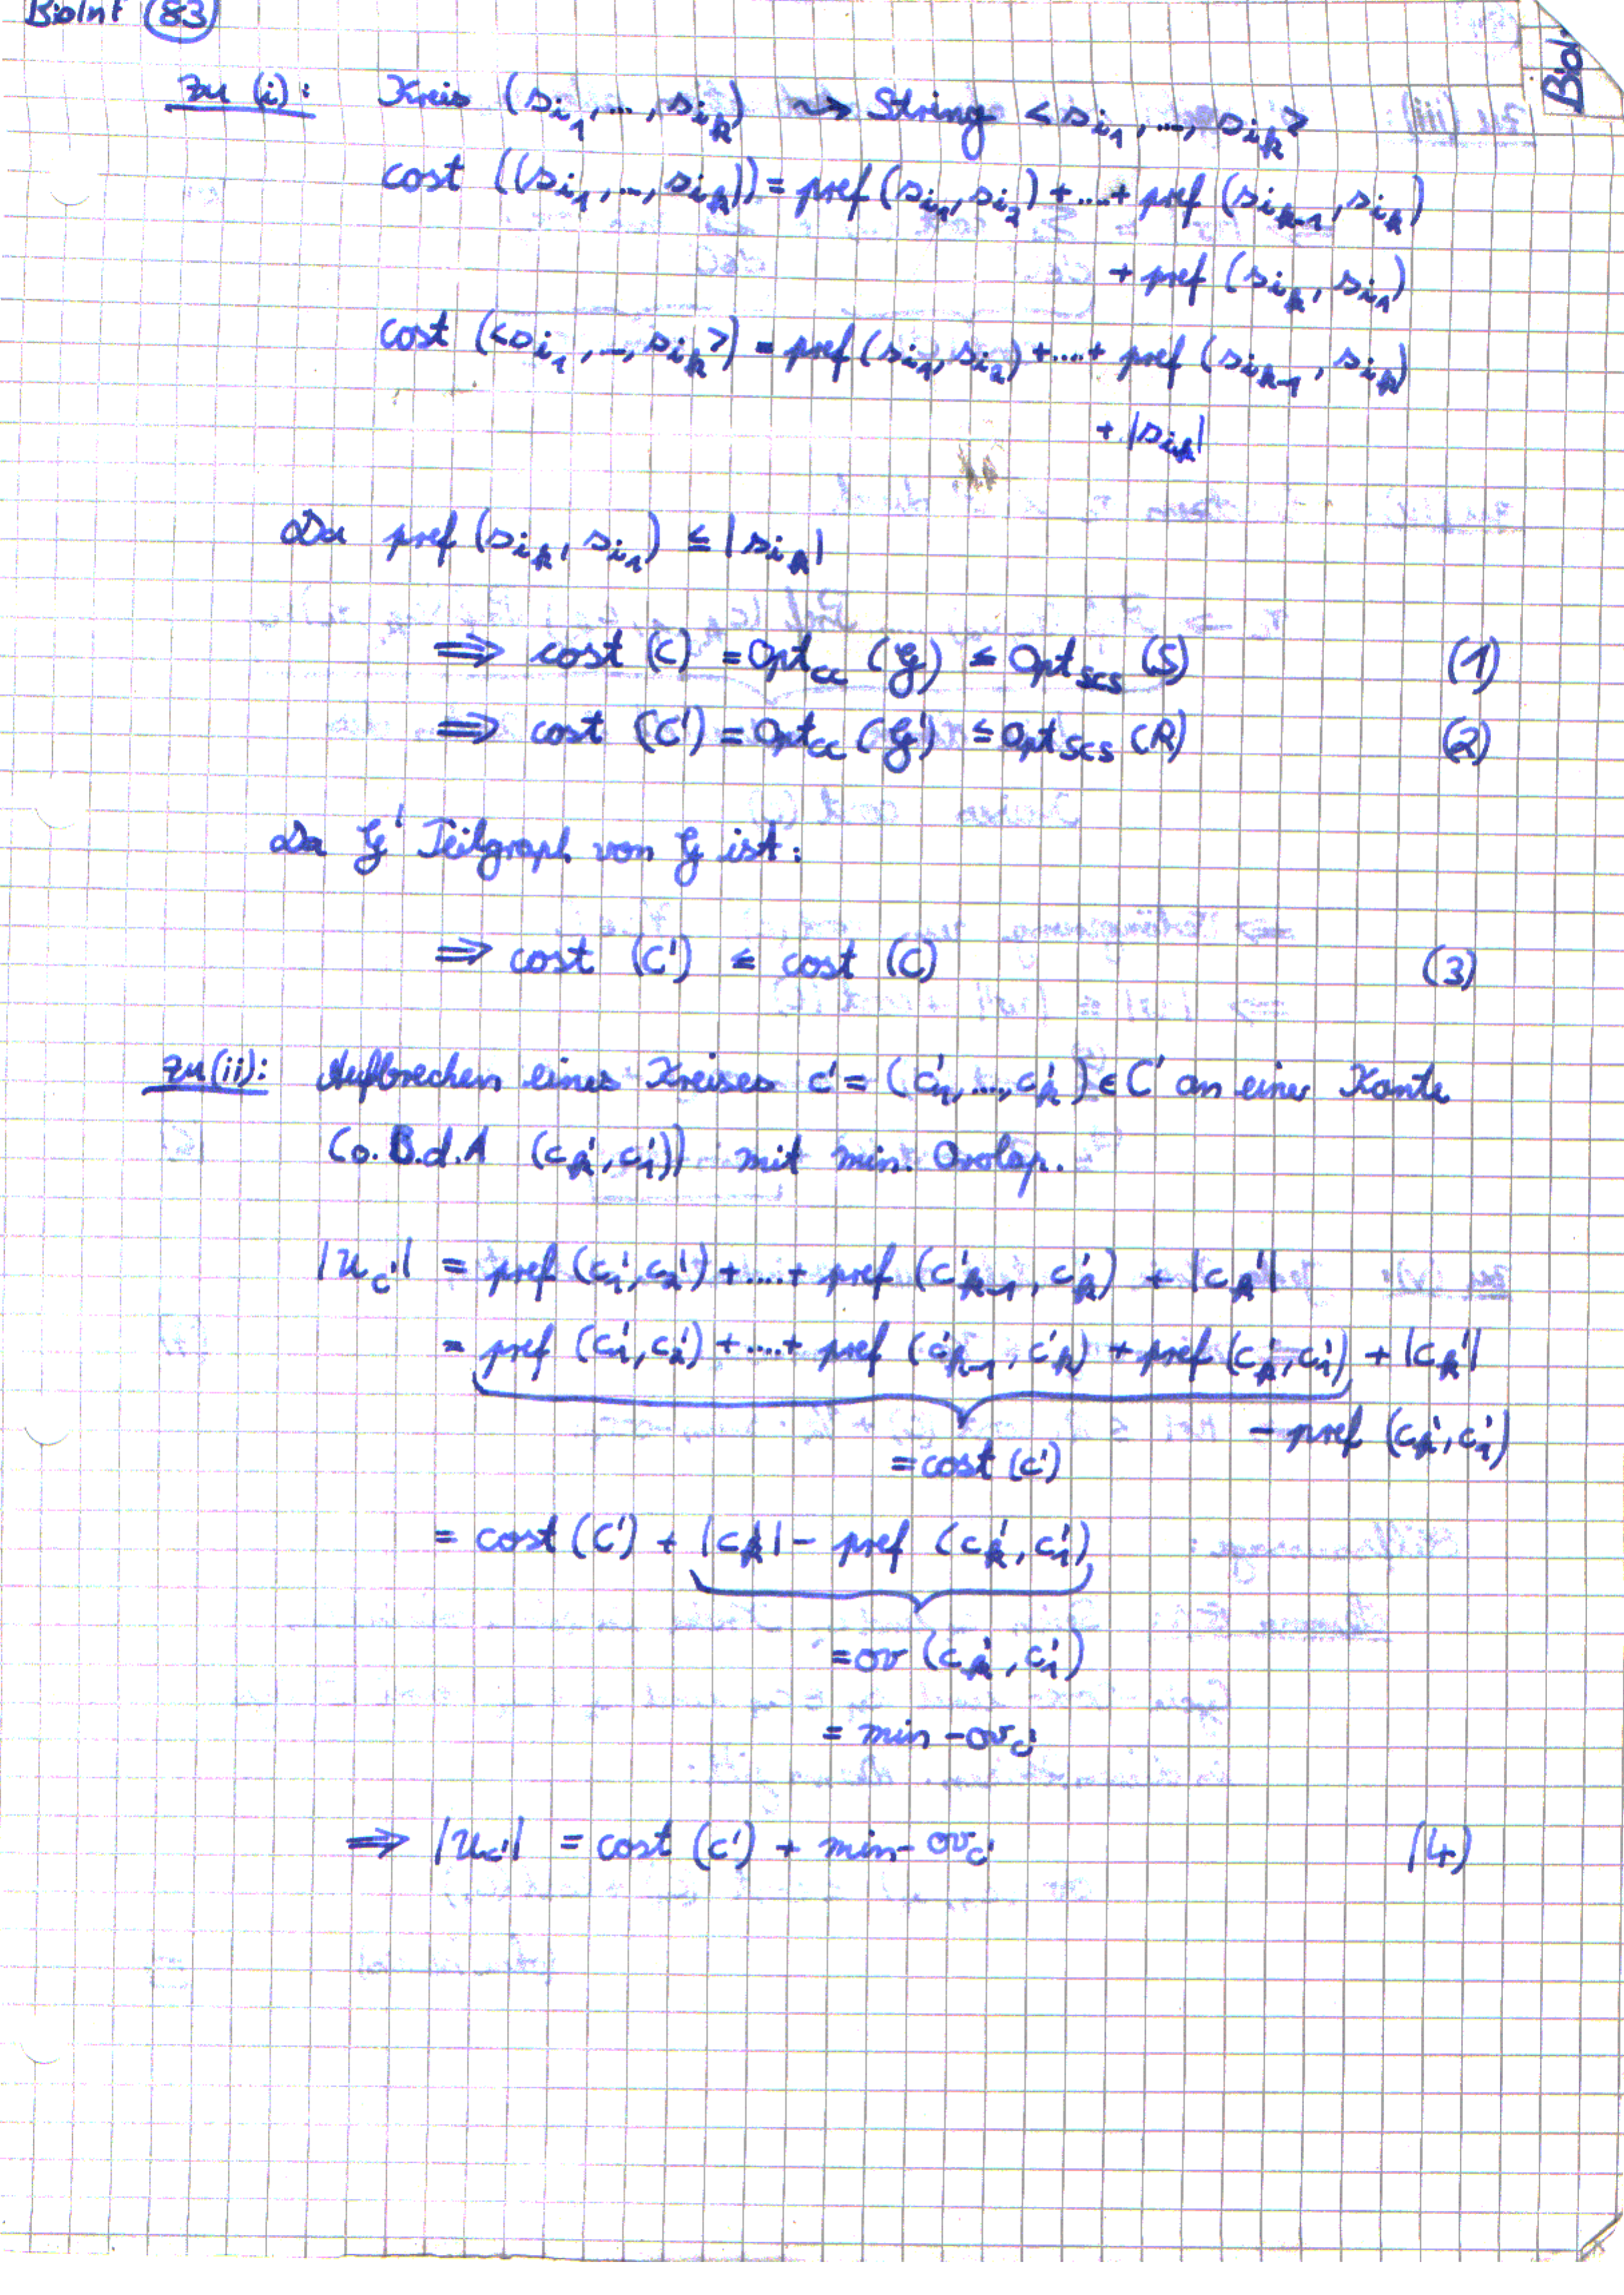 BioInf 83
Biol
zu (i): Kreis (s_{i_1}, ..., s_{i_k}) ⇝ String <s_{i_1}, ..., s_{i_k}>
cost ((s_{i_1}, ..., s_{i_k})) = pref (s_{i_1}, s_{i_2}) + .... + pref (s_{i_{k-1}}, s_{i_k})
+ pref (s_{i_k}, s_{i_1})
cost (<s_{i_1}, ..., s_{i_k}>) = pref (s_{i_1}, s_{i_2}) + .... + pref (s_{i_{k-1}}, s_{i_k})
+ |s_{i_k}|
Da pref (s_{i_k}, s_{i_1}) ≤ |s_{i_k}|
⟹ cost (C) = Opt_{cc} (G) ≤ Opt_{SCS} (S) (1)
⟹ cost (C') = Opt_{cc} (G') ≤ Opt_{SCS} (R) (2)
Da G' Teilgraph von G ist:
⟹ cost (C') ≤ cost (C) (3)
zu (ii): Aufbrechen eines Kreises c' = (c'_1, ..., c'_k) ∈ C' an einer Kante
(o.B.d.A (c'_k, c'_1)) mit min. Overlap.
|u_{c'}| = pref (c'_1, c'_2) + .... + pref (c'_{k-1}, c'_k) + |c'_k|
= pref (c'_1, c'_2) + .... + pref (c'_{k-1}, c'_k) + pref (c'_k, c'_1) + |c'_k|
- pref (c'_k, c'_1)
= cost (c')
= cost (c') + |c'_k| - pref (c'_k, c'_1)
= ov (c'_k, c'_1)
= min-ov_{c'}
⟹ |u_{c'}| = cost (c') + min-ov_{c'} (4)